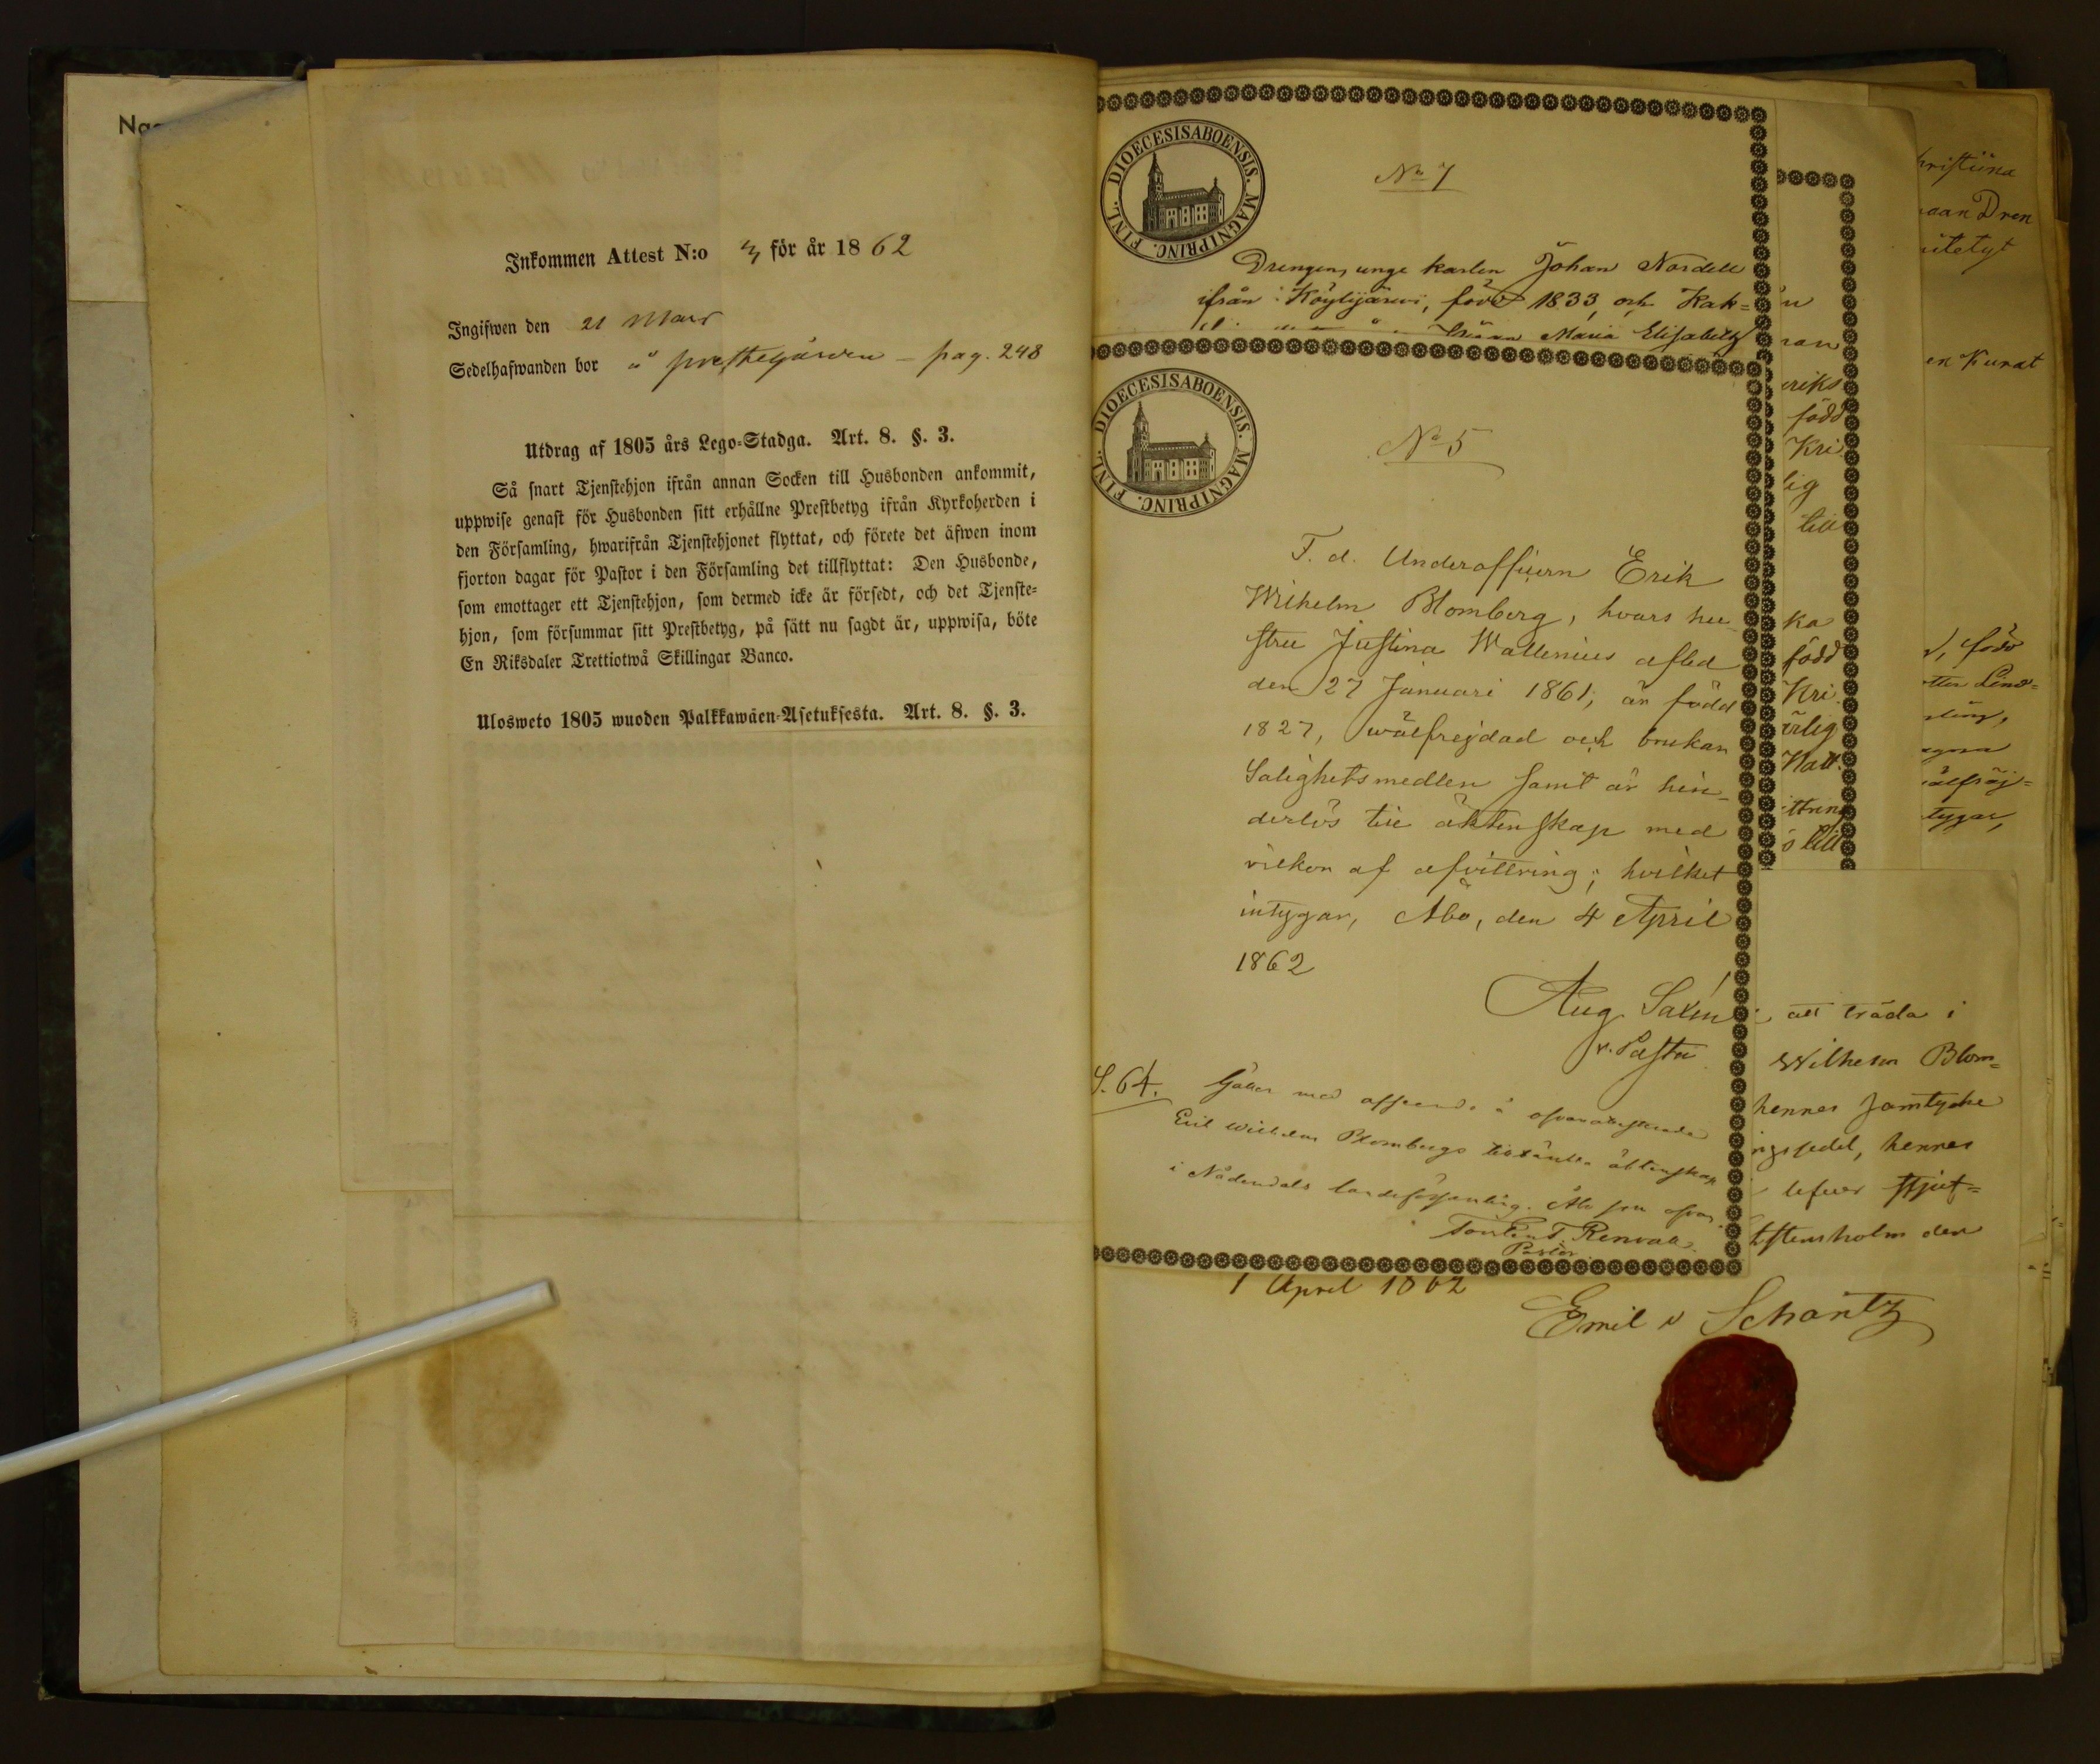 Inkommen Attest N:o 3 för år 1862
Ingifwen den 21 Mars
Sedelhafwanden bor å prestegården - pag. 248
Utdrag af 1805 års Lego-Stadga. Art. 8. §. 3.
Så snart Tjenstehjon ifrån annan Socken till Husbonden ankommit,
uppwise genast för Husbonden sitt erhållne Prestbetyg ifrån Kyrkoherden i
den Församling, hwarifrån Tjenstehjonet flyttat, och förete det äfwen inom
fjorton dagar för Pastor i den Församling det tillflyttat: Den Husbonde,
som emottager ett Tjenstehjon, som dermed icke är försedt, och det Tjenste-
hjon, som försummar sitt Prestbetyg, på sätt nu sagdt är, uppwisa, böte
En Riksdaler Trettiotwå Skillingar Banco.
Ulosweto 1805 wuoden Palkkawäen-Asetuksesta. Art. 8. §. 3.
DIOECESIS ABOENSIS. MAGNI PRINC. FINL.
No 7
Drengen, unge karlen Johan Nordell
ifrån Köylijärwi, född 1833, och Kak-
Maria Elisabeth
DIOECESIS ABOENSIS. MAGNI PRINC. FINL.
No 5
F. d. Underofficern Erik
Wilhelm Blomberg, hvars hu-
stru Justina Wallenius afled
den 27 Januari 1861, är född
1827, wälfrejdad och brukar
Salighetsmedlen samt är hin-
derlös till äktenskap med
vilkor af afvittring; hvilket
intygar, Åbo, den 4 April
1862
Aug. Salén
v. Pastor
S. 64. Gäller med afseende å ofvanattesterade
Erik Wilhelm Blombergs tilltänkta äktenskap
i Nådendals landsförsamling. Åbo som ofvan.
T. Renvall
Pastor
1 April 1862
Emil v Schantz
att träda i
Wilhelm Blom-
hennes samtycke
hennes
den
eriks
född
Kri
lig
till
ka
född
Kri
ärlig
Hatt.
ittring
s till
hristina
aan Dren
itetyt
en Kunat
, född
Lind-
älfräj-
tygar,